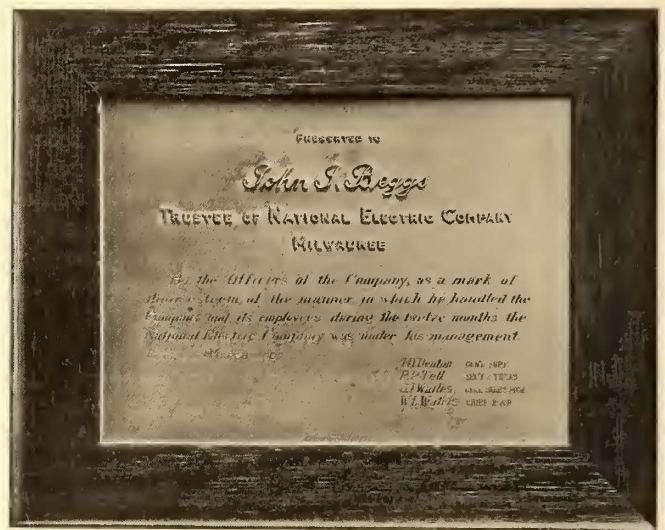 PRESENTED TO
John I. Beggs
TRUSTEE OF NATIONAL ELECTRIC COMPANY
MILWAUKEE
By the Officers of the Company, as a mark of
their esteem, of the manner in which he handled the
Company and its employees during the twelve months the
National Electric Company was under his management.
Denton GEN'L MGR.
Tell SEC'Y & TREAS
Waites, GEN'L SALES MGR
Waters CHIEF ENGR